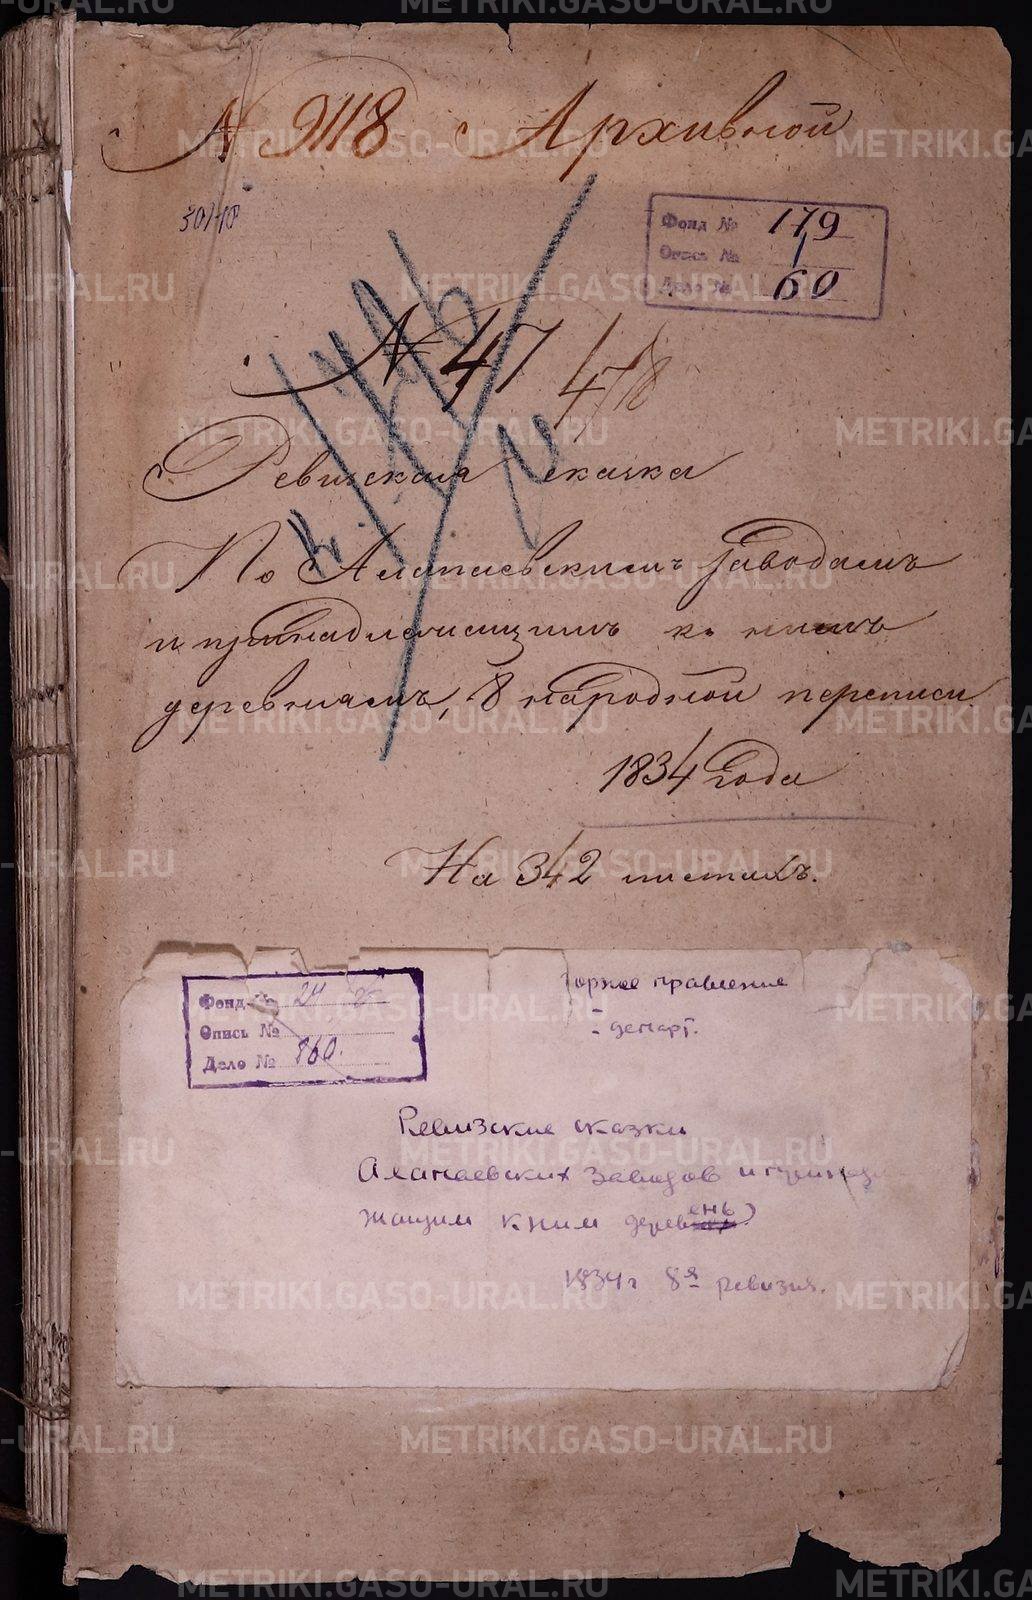 № 9118 Архивной
Фонд № 179
Опись № 1
Дело № 60
№ 47
478
Ревизская сказка
По Алапаевскимъ заводамъ
и принадлежащимъ къ нимъ
деревнямъ, 8 народной переписи
1834 Года
На 342 листахъ.
Фонд № 24
Опись №
Дело № 860.
Горное правление
- департ.
Ревизские сказки
Алапаевских заводов и принадле
жащим к ним деревень
1834 г 8я ревизия.
METRIKI.GASO-URAL.RU